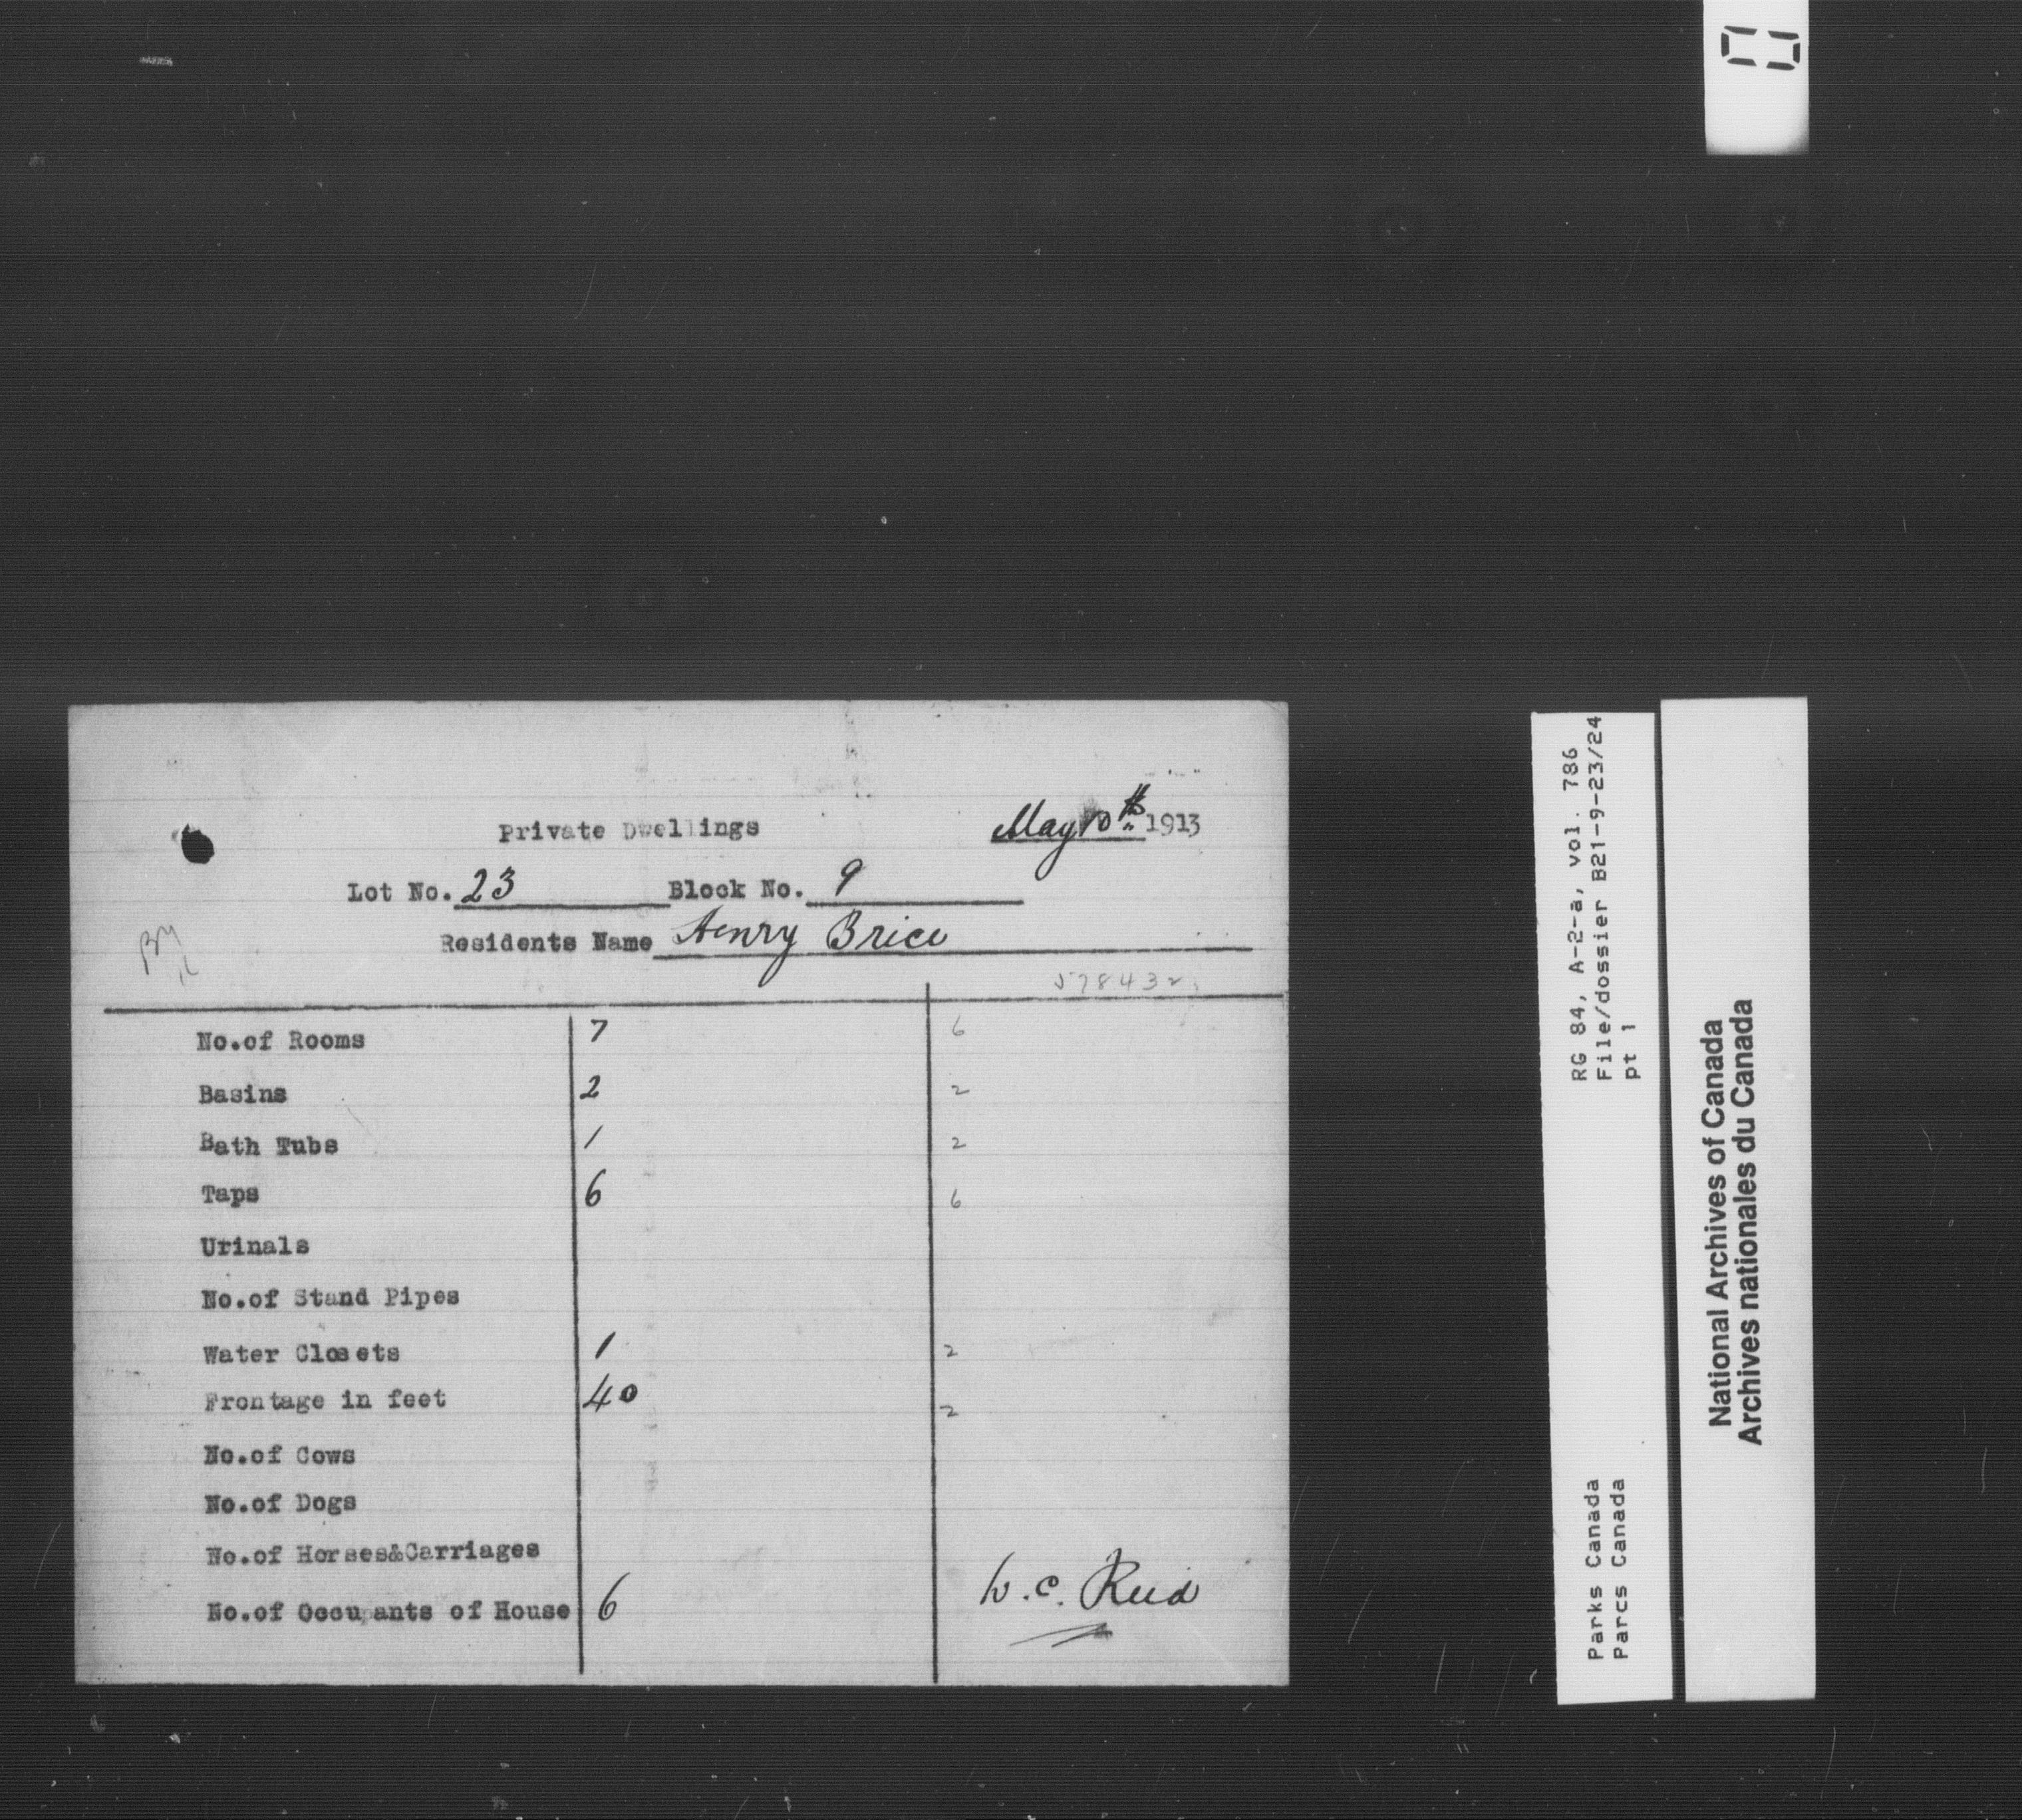 Private Dwellings May 10th 1913
Lot No. 23 Block No. 9
Residents Name Henry Brice
578432
No.of Rooms 7 6
Basins 2 2
Bath Tubs 1 2
Taps 6 6
Urinals
No.of Stand Pipes
Water Closets 1 2
Frontage in feet 40 2
No.of Cows
No.of Dogs
No.of Horses&Carriages
No.of Occupants of House 6 W.C. Reid
RG 84, A-2-a, vol. 786
File/dossier B21-9-23/24
pt 1
Parks Canada
Parcs Canada
National Archives of Canada
Archives nationales du Canada